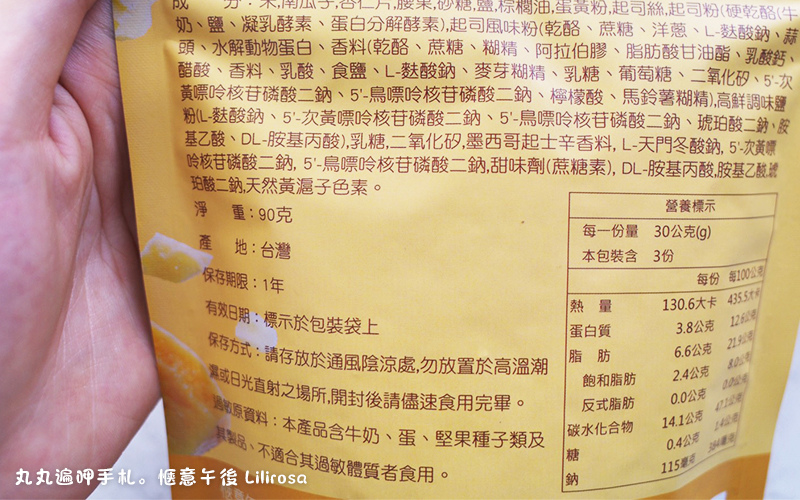 成 分:米,南瓜子,杏仁片,腰果,砂糖,鹽,棕櫚油,蛋黃粉,起司絲,起司粉(硬乾酪(牛
奶、鹽、凝乳酵素、蛋白分解酵素),起司風味粉(乾酪、蔗糖、洋蔥、L-麩酸鈉、蒜
頭、水解動物蛋白、香料(乾酪、蔗糖、糊精、阿拉伯膠、脂肪酸甘油酯、乳酸鈣、
醋酸、香料、乳酸、食鹽、L-麩酸鈉、麥芽糊精、乳糖、葡萄糖、二氧化矽、5'-次
黃嘌呤核苷磷酸二鈉、5'-鳥嘌呤核苷磷酸二鈉、檸檬酸、馬鈴薯糊精),高鮮調味鹽
粉(L-麩酸鈉、5'-次黃嘌呤核苷磷酸二鈉、5'-鳥嘌呤核苷磷酸二鈉、琥珀酸二鈉、胺
基乙酸、DL-胺基丙酸),乳糖,二氧化矽,墨西哥起士辛香料, L-天門冬酸鈉, 5'-次黃嘌
呤核苷磷酸二鈉, 5'-鳥嘌呤核苷磷酸二鈉,甜味劑(蔗糖素), DL-胺基丙酸,胺基乙酸,琥
珀酸二鈉,天然黃滬子色素。
淨 重:90克
產 地:台灣
保存期限:1年
有效日期:標示於包裝袋上
保存方式:請存放於通風陰涼處,勿放置於高溫潮
濕或日光直射之場所,開封後請儘速食用完畢。
過敏原資料:本產品含牛奶、蛋、堅果種子類及
其製品、不適合其過敏體質者食用。
營養標示
每一份量 30公克(g)
本包裝含 3份
每份 每100公克
熱 量 130.6大卡 435.5大卡
蛋白質 3.8公克 12.6公克
脂 肪 6.6公克 21.9公克
飽和脂肪 2.4公克 8.0公克
反式脂肪 0.0公克 0.0公克
碳水化合物 14.1公克 47.1公克
糖 0.4公克 1.4公克
鈉 115毫克 384毫克
丸丸遍呷手札。愜意午後 Lilirosa